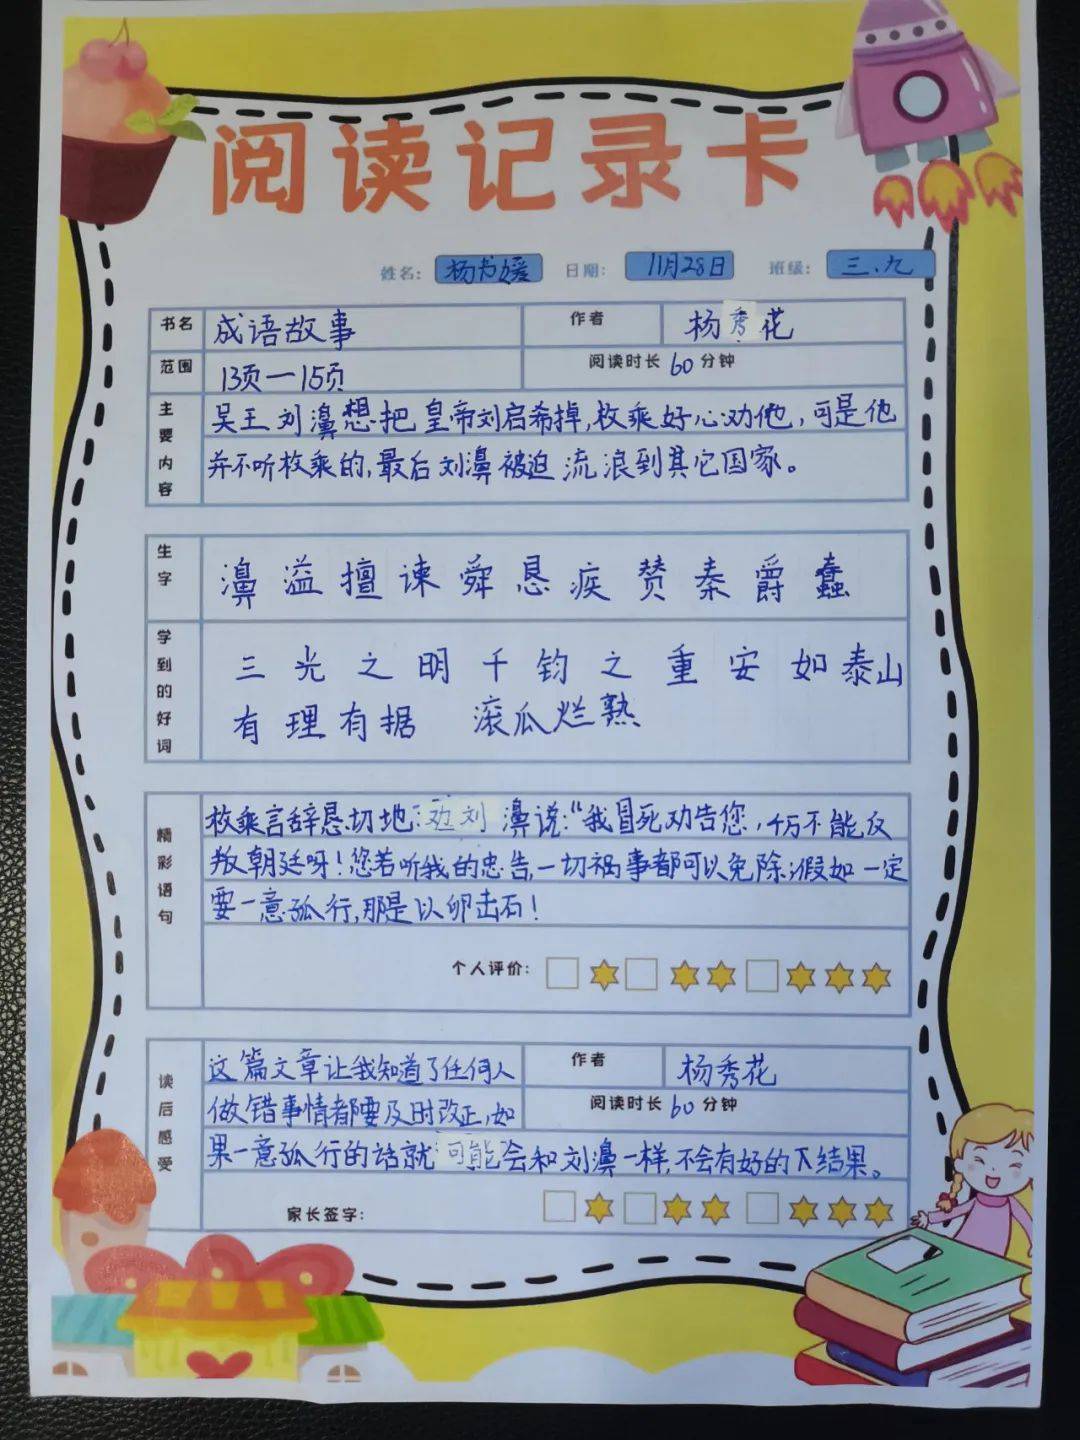 阅读记录卡
姓名: 杨书媛 日期: 11月28日 班级: 三.九
书名 成语故事 作者 杨秀花
范围 13页一15页 阅读时长 60 分钟
主要内容
吴王刘濞想把皇帝刘启希掉,枚乘好心劝他,可是他
并不听枚乘的,最后刘濞被迫流浪到其它国家。
生字
濞 溢 擅 谏 舜 恳 疾 赞 秦 爵 蠢
学到的好词
三光之明 千钧之重 安如泰山
有理有据 滚瓜烂熟
精彩语句
枚乘言辞恳切地劝刘濞说:“我冒死劝告您,千万不能反
叛朝廷呀!您若听我的忠告,一切祸事都可以免除;假如一定
要一意孤行,那是以卵击石!
个人评价:
读后感受
这篇文章让我知道了任何人
作者 杨秀花
做错事情都要及时改正,如
阅读时长 60 分钟
果一意孤行的话就可能会和刘濞一样,不会有好的下结果。
家长签字: